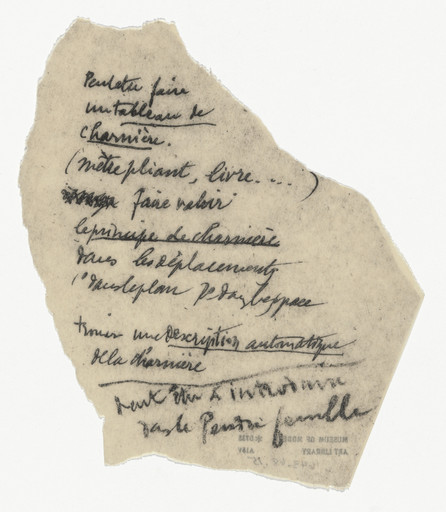 Peut être faire
un tableau de
charnière.
(mètre pliant, livre....)
faire valoir
le principe de charnière
dans les déplacements
1° dans le plan 2° dans l'espace
trouver une description automatique
de la charnière
Peut être à introduire
dans le Pendu femelle
MUSEUM OF MODERN
ART LIBRARY